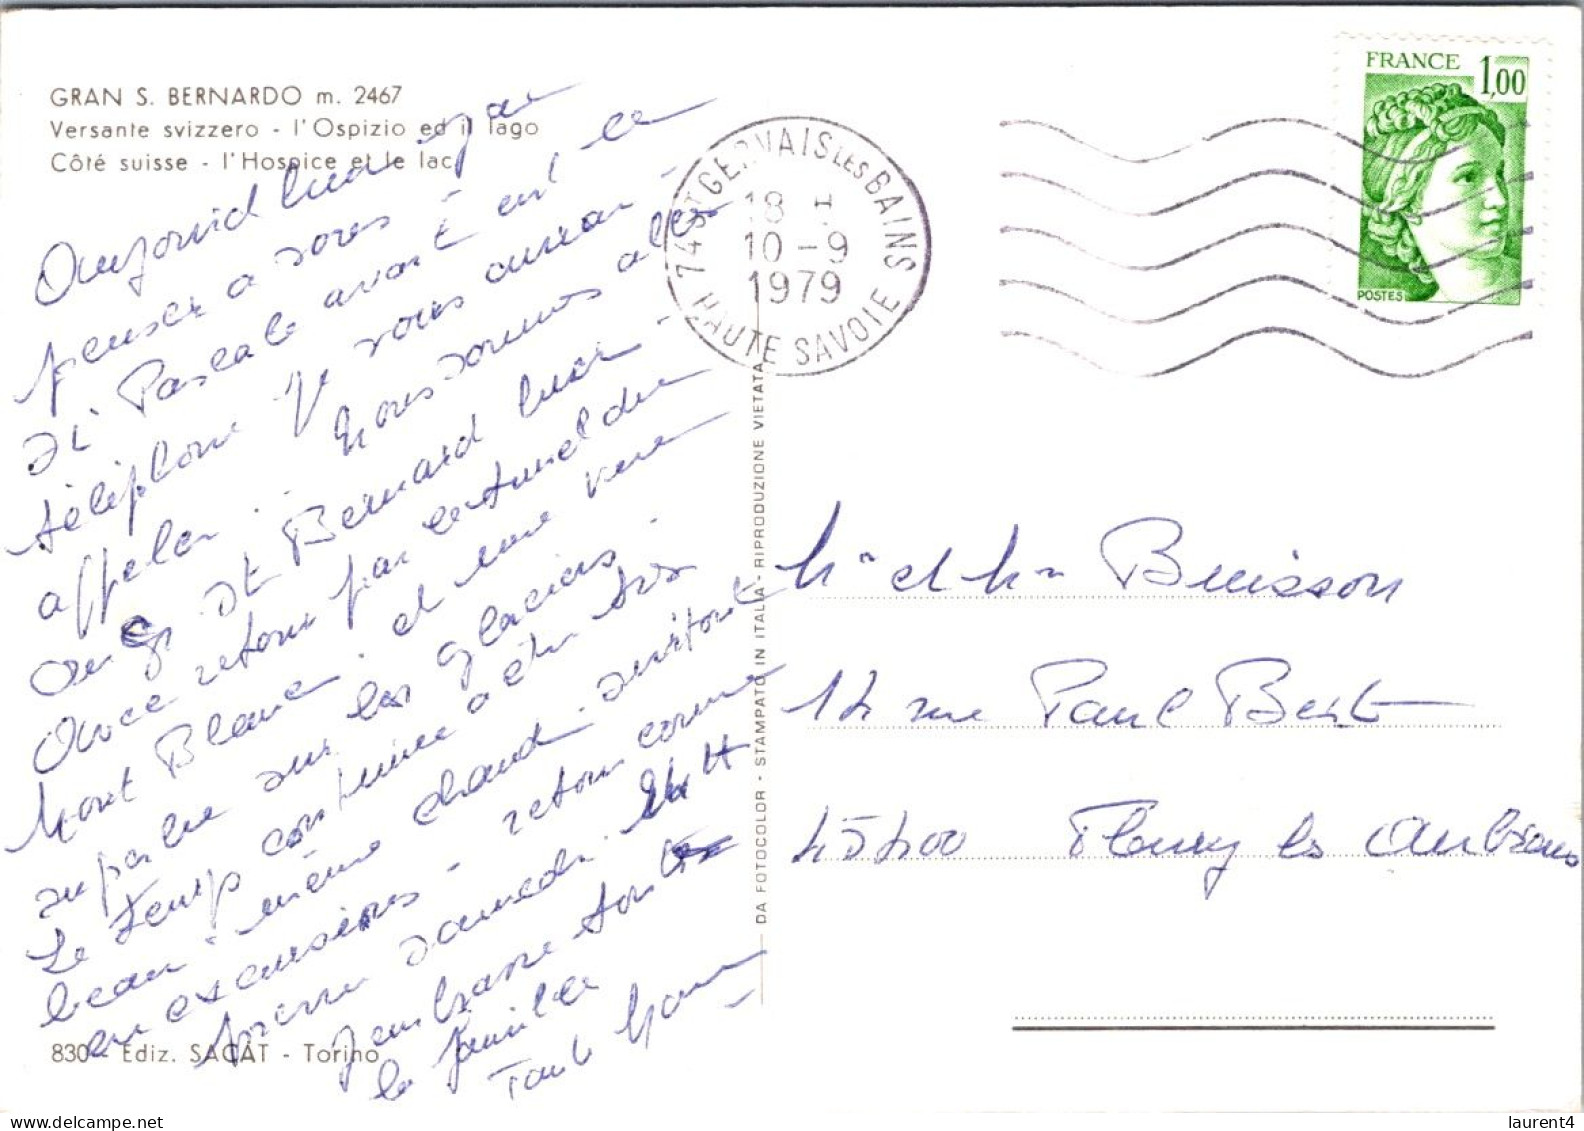 GRAN S. BERNARDO m. 2467
Versante svizzero - l'Ospizio ed il lago
Côté suisse - l'Hospice et le lac
Aujourd'hui
penser a vous
si Pascale avait eu le
téléphone Je vous aurai
appeler. Nous sommes allés
au St Bernard hier
avec retour par le tunnel du
Mont Blanc. et une vue
superbe sur les glaciers.
Le temps continue a etre très
beau même chaud surtout
en excursions. retour comme
prevu samedi
J'embrasse toute
la famille
Tante
830 - Ediz. SACAT - Torino
DA FOTOCOLOR - STAMPATO IN ITALIA - RIPRODUZIONE VIETATA
74 ST GERVAIS LES BAINS
18 H
10 - 9
1979
HAUTE SAVOIE
FRANCE 1,00
POSTES
Mr et Mme Buisson
12 rue Paul Bert
45400 Fleury les Aubrais
laurent4